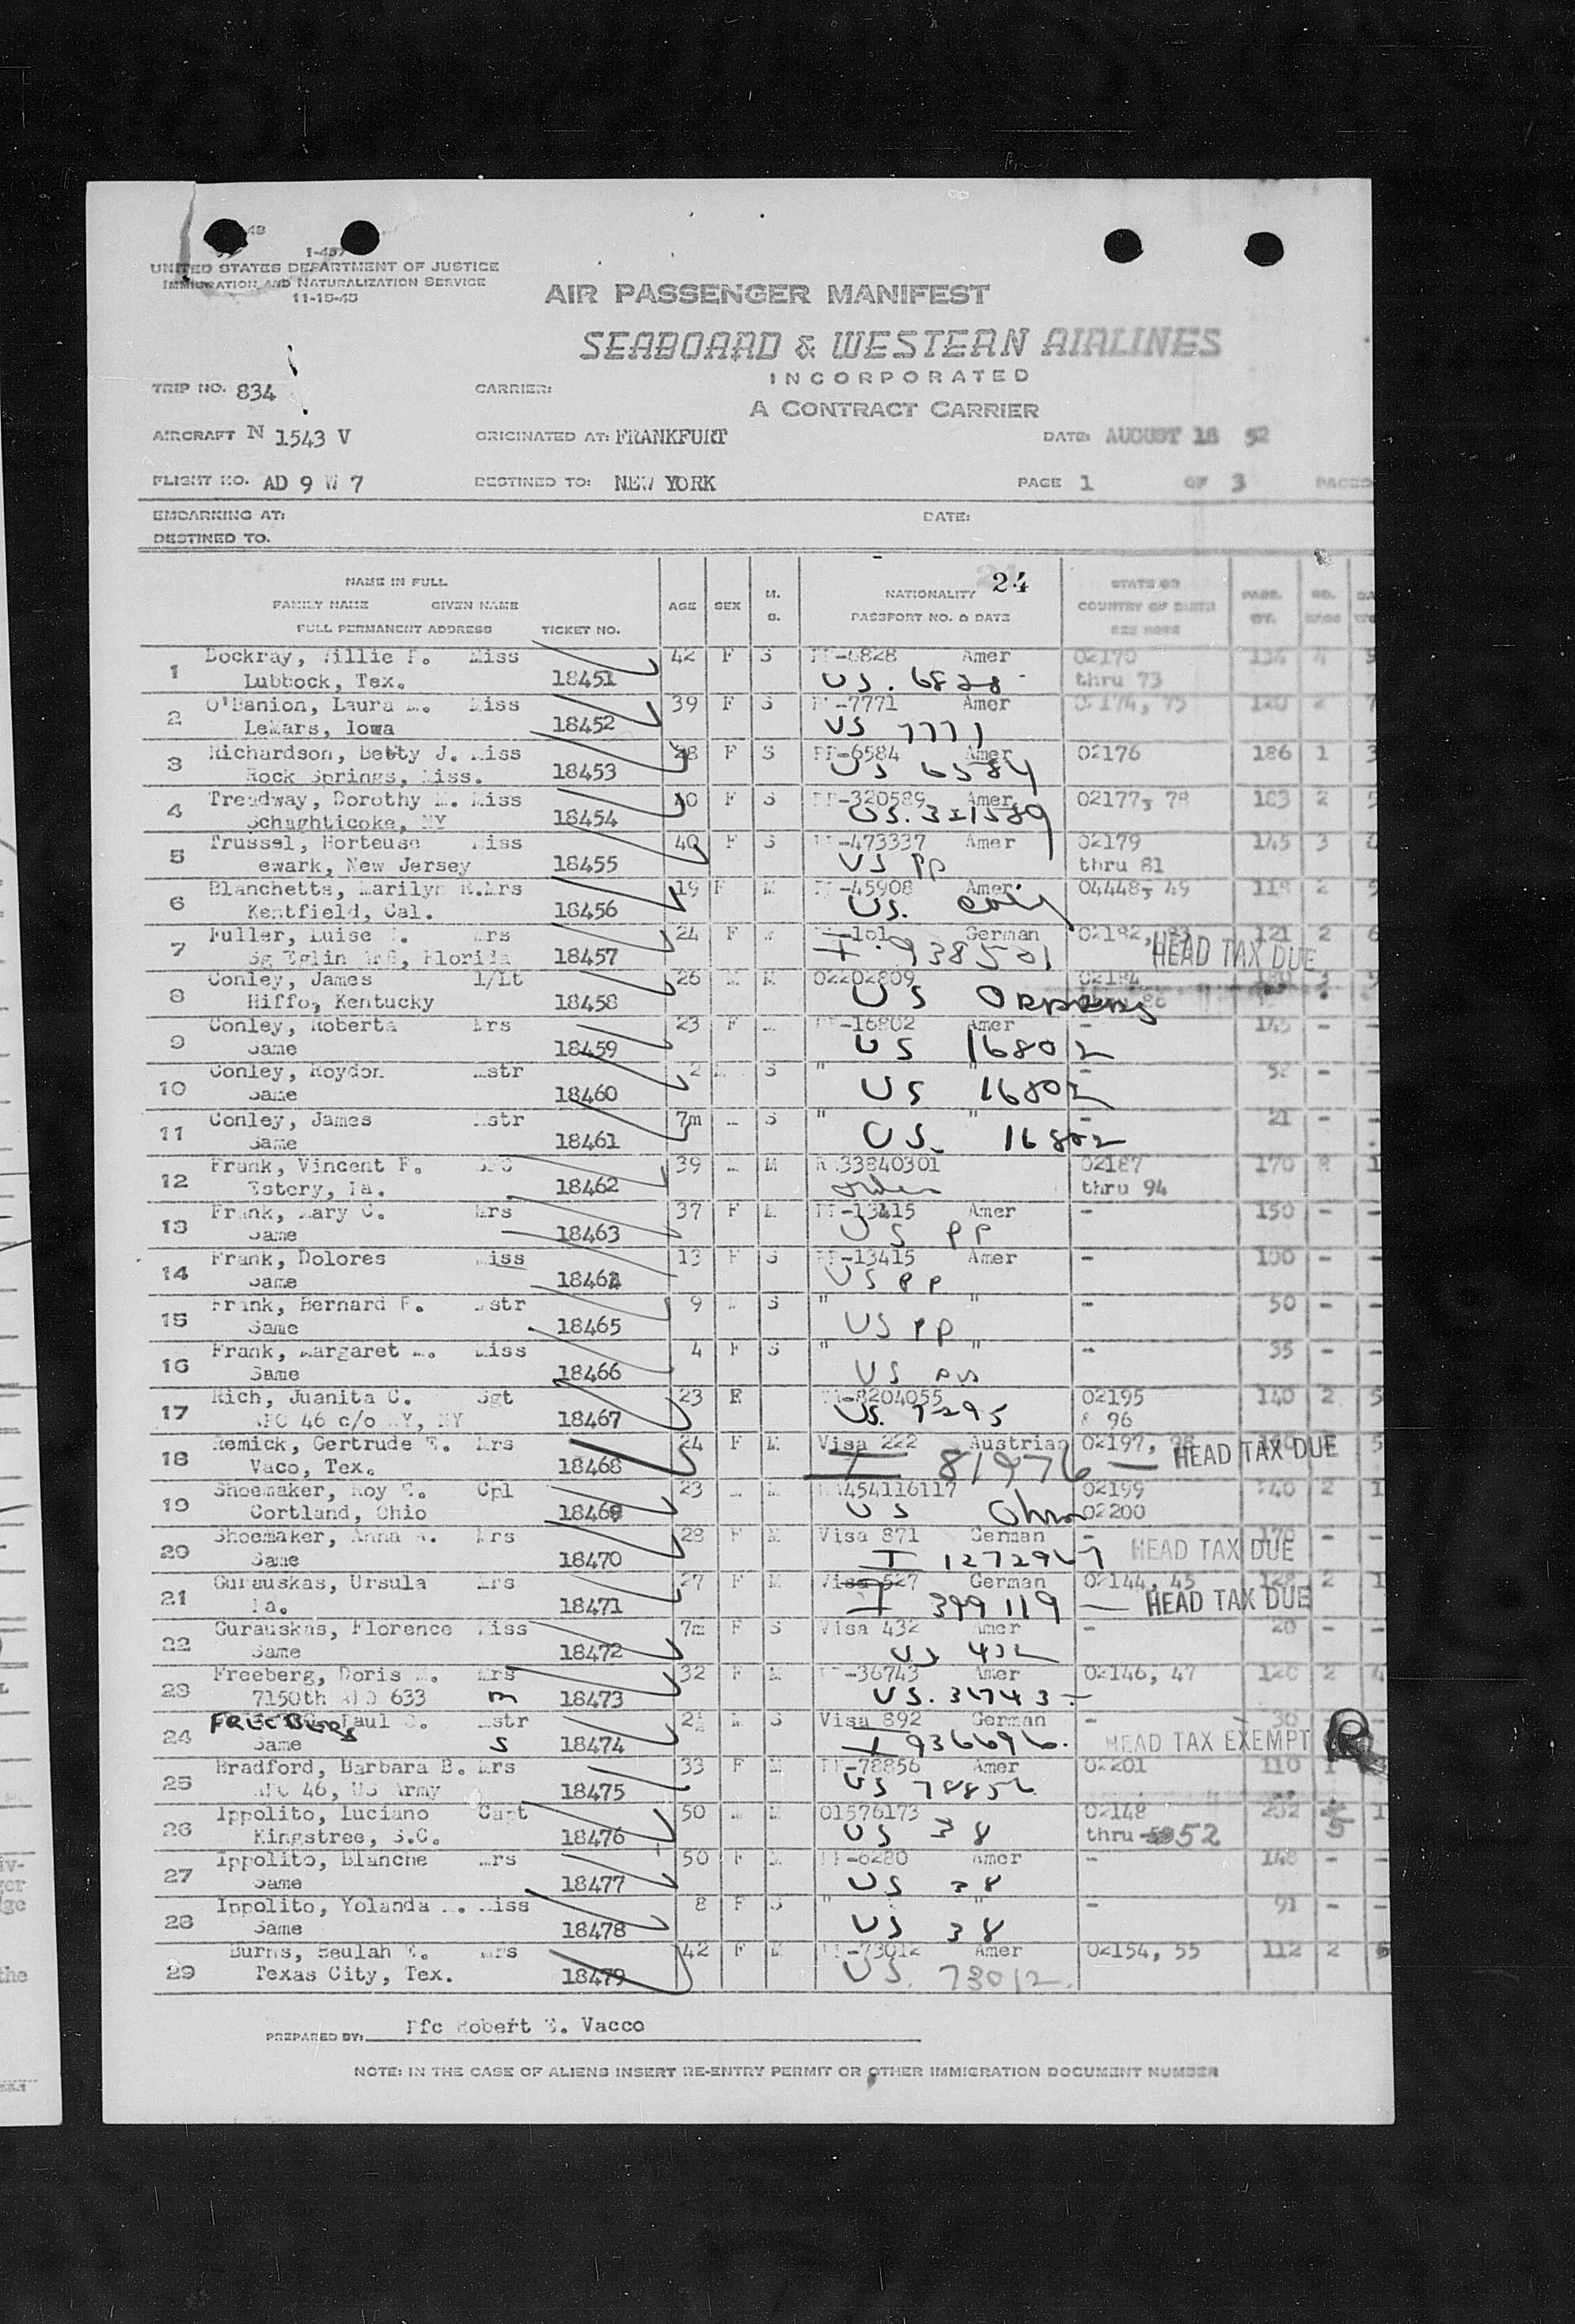 1-457
UNITED STATES DEPARTMENT OF JUSTICE
IMMIGRATION AND NATURALIZATION SERVICE
11-15-45
AIR PASSENGER MANIFEST
SEABOARD & WESTERN AIRLINES
INCORPORATED
A CONTRACT CARRIER
TRIP NO. 834 CARRIER:
AIRCRAFT N 1543 V ORIGINATED AT: FRANKFURT DATE: AUGUST 18 52
FLIGHT NO. AD 9 W 7 DESTINED TO: NEW YORK PAGE 1 OF 3 PAGES
EMBARKING AT: DATE:
DESTINED TO.
24
NAME IN FULL
FAMILY NAME GIVEN NAME
FULL PERMANENT ADDRESS TICKET NO.
AGE SEX M. S. NATIONALITY PASSPORT NO. & DATE
STATE OR COUNTRY OF BIRTH SEE NOTE
PASS. WT. NO. BAGS
1 Dockray, Willie F. Miss 42 F S PP-6828 Amer 02170 134 4
Lubbock, Tex. 18451 US. 6828 thru 73
2 O'Banion, Laura M. Miss 39 F S PP-7771 Amer 02174, 75 120 2 7
LeMars, Iowa 18452 US 7771
3 Richardson, Betty J. Miss 28 F S PP-6584 Amer 02176 186 1 3
Rock Springs, Miss. 18453 US 6584
4 Treadway, Dorothy M. Miss 40 F S PP-320589 Amer 02177, 78 183 2 5
Schaghticoke, NY 18454 US.
5 Trussel, Horteuse Miss 40 F S PP-473337 Amer 02179 145 3
ewark, New Jersey 18455 US PP thru 81
6 Blanchette, Marilyn R. Mrs 19 F M PP-45908 Amer 04448, 49 118 2 5
Kentfield, Cal. 18456 US.
7 Fuller, Luise Mrs 24 F M German 121 2 6
Sg Eglin AFB, Florida 18457 I 938501 HEAD TAX DUE
8 Conley, James 1/Lt 26 M M 02202809 02184
Hiffo, Kentucky 18458 US Orders
9 Conley, Roberta Mrs 23 F M PP-16802 Amer - 145 - -
Same 18459 US 16802
10 Conley, Roydon Mstr 2 M S " " - - -
Same 18460 US 16802
11 Conley, James Mstr 7m M S " " - 21 - -
Same 18461 US. 16802
12 Frank, Vincent F. SFC 39 M M RA33840301 02187 170 8 1
Estery, Pa. 18462 Orders thru 94
13 Frank, Mary C. Mrs 37 F M PP-13415 Amer - 150 - -
Same 18463 US PP
14 Frank, Dolores Miss 13 F S PP-13415 Amer - 100 - -
Same 18464 US PP
15 Frank, Bernard F. Mstr 9 M S " " - 50 - -
Same 18465 US PP
16 Frank, Margaret M. Miss 4 F S " " - 35 - -
Same 18466 US
17 Rich, Juanita C. Sgt 23 F 8204055 02195 140 2 5
APO 46 c/o NY, NY 18467 US. 7295 & 96
18 Remick, Gertrude E. Mrs 24 F M Visa 222 Austrian 02197, 98 5
Vaco, Tex. 18468 I 81976 — HEAD TAX DUE
19 Shoemaker, Roy E. Cpl 23 M M RA454116117 02199 140 2 1
Cortland, Ohio 18469 US 02200
20 Shoemaker, Anna Mrs 28 F M Visa 871 German - 170 - -
Same 18470 I 1272967 HEAD TAX DUE
21 Gurauskas, Ursula Mrs 27 F M Visa 527 German 02144, 45 128 2 1
Pa. 18471 I 399119 — HEAD TAX DUE
22 Gurauskas, Florence Miss 7m F S Visa 432 Amer - 20 - -
Same 18472 US 432
23 Freeberg, Doris M. Mrs 32 F M PP-36743 Amer 02146, 47 126 2 4
7150th APO 633 m 18473 US. 36743 -
24 FREEBERG Paul O. Mstr 2½ M S Visa 892 German - 30 - -
Same S 18474 I 936696. HEAD TAX EXEMPT
25 Bradford, Barbara B. Mrs 33 F M PP-78856 Amer 02201 110 1
APO 46, US Army 18475 US 78856
26 Ippolito, Luciano Capt 50 M M 01576173 02148 5 1
Kingstree, S.C. 18476 US 38 thru 52
27 Ippolito, Blanche Mrs 50 F M PP-6280 Amer - 148 - -
Same 18477 US 38
28 Ippolito, Yolanda M. Miss 8 F S " " - 91 - -
Same 18478 US 38
29 Burns, Beulah E. Mrs 42 F M PP-73012 Amer 02154, 55 112 2 6
Texas City, Tex. 18479 US. 73012.
PREPARED BY: Pfc Robert E. Vacco
NOTE: IN THE CASE OF ALIENS INSERT RE-ENTRY PERMIT OR OTHER IMMIGRATION DOCUMENT NUMBER